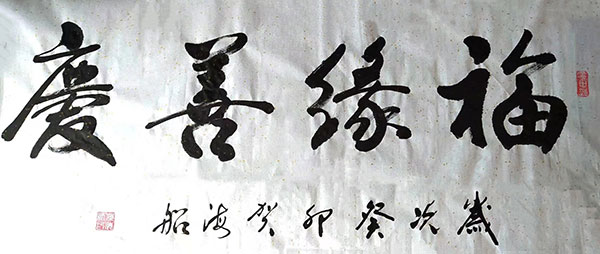 福缘善慶
歲次癸卯贺海船